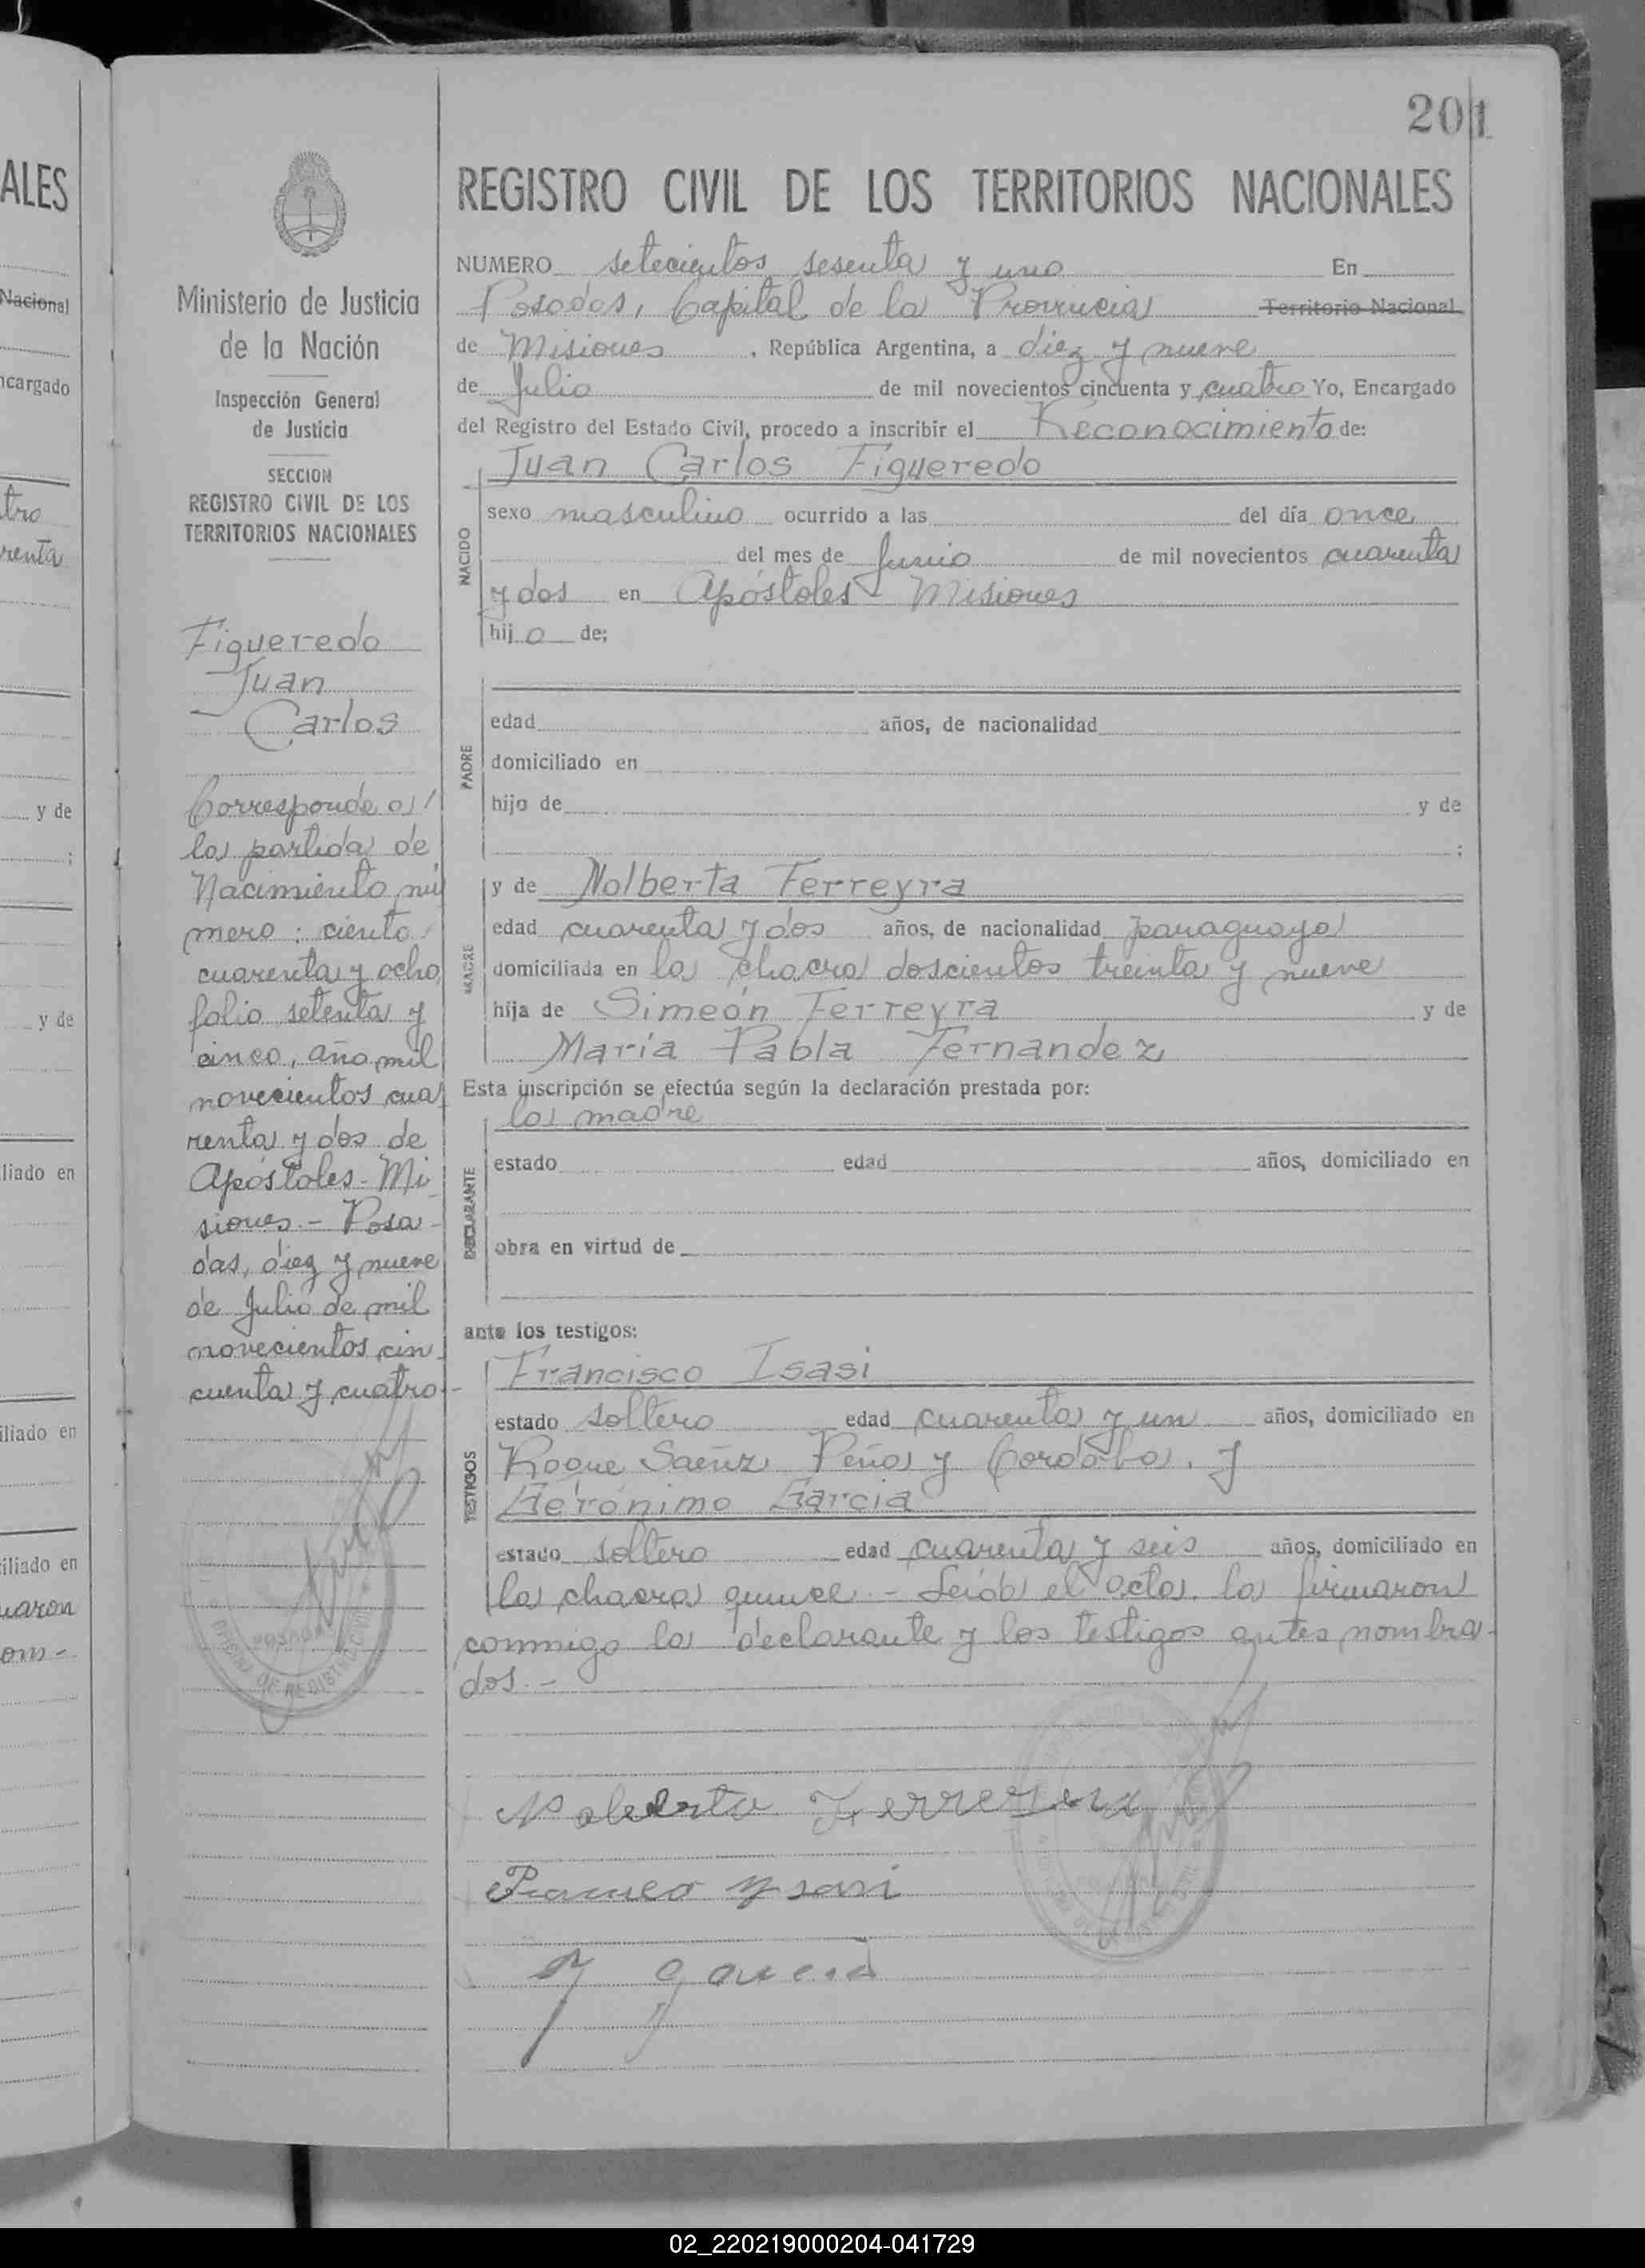 201
ALES
Nacional
ncargado
tro
renta
y de
;
y de
liado en
iliado en
iliado en
naron
om -
Ministerio de Justicia
de la Nación
Inspección General
de Justicia
SECCION
REGISTRO CIVIL DE LOS
TERRITORIOS NACIONALES
Figueredo
Juan
Carlos
Corresponde a
la partida de
Nacimiento nú
mero: ciento
cuarenta y ocho
folio setenta y
cinco, año mil
novecientos cua
renta y dos de
Apóstoles - Mi
siones. - Posa-
das, diez y nueve
de Julio de mil
novecientos cin
cuenta y cuatro. -
POSADAS
OFICINA DE REGISTRO CIVIL
REGISTRO CIVIL DE LOS TERRITORIOS NACIONALES
NUMERO setecientos sesenta y uno En
Posadas, Capital de la Provincia Territorio Nacional
de Misiones , República Argentina, a diez y nueve
de Julio de mil novecientos cincuenta y cuatro Yo, Encargado
del Registro del Estado Civil, procedo a inscribir el Reconocimiento de:
Juan Carlos Figueredo
NACIDO
sexo masculino ocurrido a las del día once
del mes de Junio de mil novecientos cuarenta
y dos en Apóstoles - Misiones
hij o de;
PADRE
edad años, de nacionalidad
domiciliado en
hijo de y de
;
MADRE
y de Nolberta Ferreyra
edad cuarenta y dos años, de nacionalidad paraguaya
domiciliada en la chacra doscientos treinta y nueve
hija de Simeón Ferreyra y de
María Pabla Fernandez
Esta inscripción se efectúa según la declaración prestada por:
la madre
DECLARANTE
estado edad años, domiciliado en
obra en virtud de
ante los testigos:
Francisco Isasi
TESTIGOS
estado soltero edad cuarenta y un años, domiciliado en
Roque Saenz Peña y Cordoba. y
Gerónimo García
estado soltero edad cuarenta y seis años, domiciliado en
la chacra quince - Leída el acta. la firmaron
conmigo la declarante y los testigos antes nombra-
dos. -
Nolberta Ferreyra
Ysasi
García
02_220219000204-041729